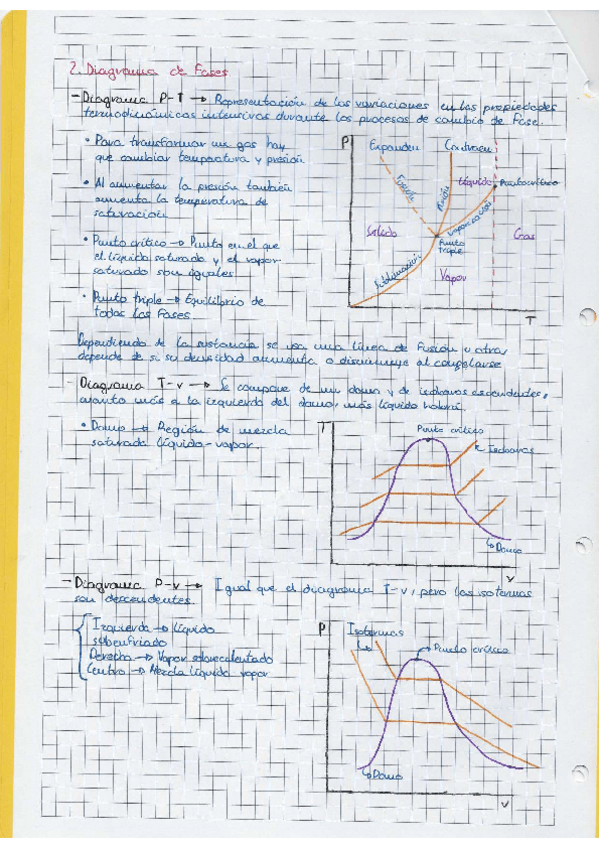 2. Diagrama de Fases
- Diagrama P-T → Representación de las variaciones en las propiedades
termodinámicas intensivas durante los procesos de cambio de fase.
• Para transformar un gas hay
que cambiar temperatura y presión
• Al aumentar la presión también
aumenta la temperatura de
saturación
• Punto crítico → Punto en el que
el líquido saturado y el vapor
saturado son iguales
• Punto triple → Equilibrio de
todas las Fases
P
Expanden
Contraen
Fusión
Fusión
Líquido
Punto crítico
Vaporización
Sólido
Punto
triple
Gas
Sublimación
Vapor
T
Dependiendo de la sustancia se usa una línea de Fusión u otra,
depende de si su densidad aumenta o disminuye al congelarse
- Diagrama T-v → Se compone de un domo y de isobaras ascendentes,
cuanto más a la izquierda del domo, más líquido habrá.
• Domo → Región de mezcla
saturada líquido-vapor
T
Punto crítico
Isobaras
Domo
v
- Diagrama P-v → Igual que el diagrama T-v, pero las isotermas
son descendentes.
Izquierda → líquido
subenfriado
Derecha → Vapor sobrecalentado
Centro → Mezcla líquido vapor
P
Isotermas
Punto crítico
Domo
v